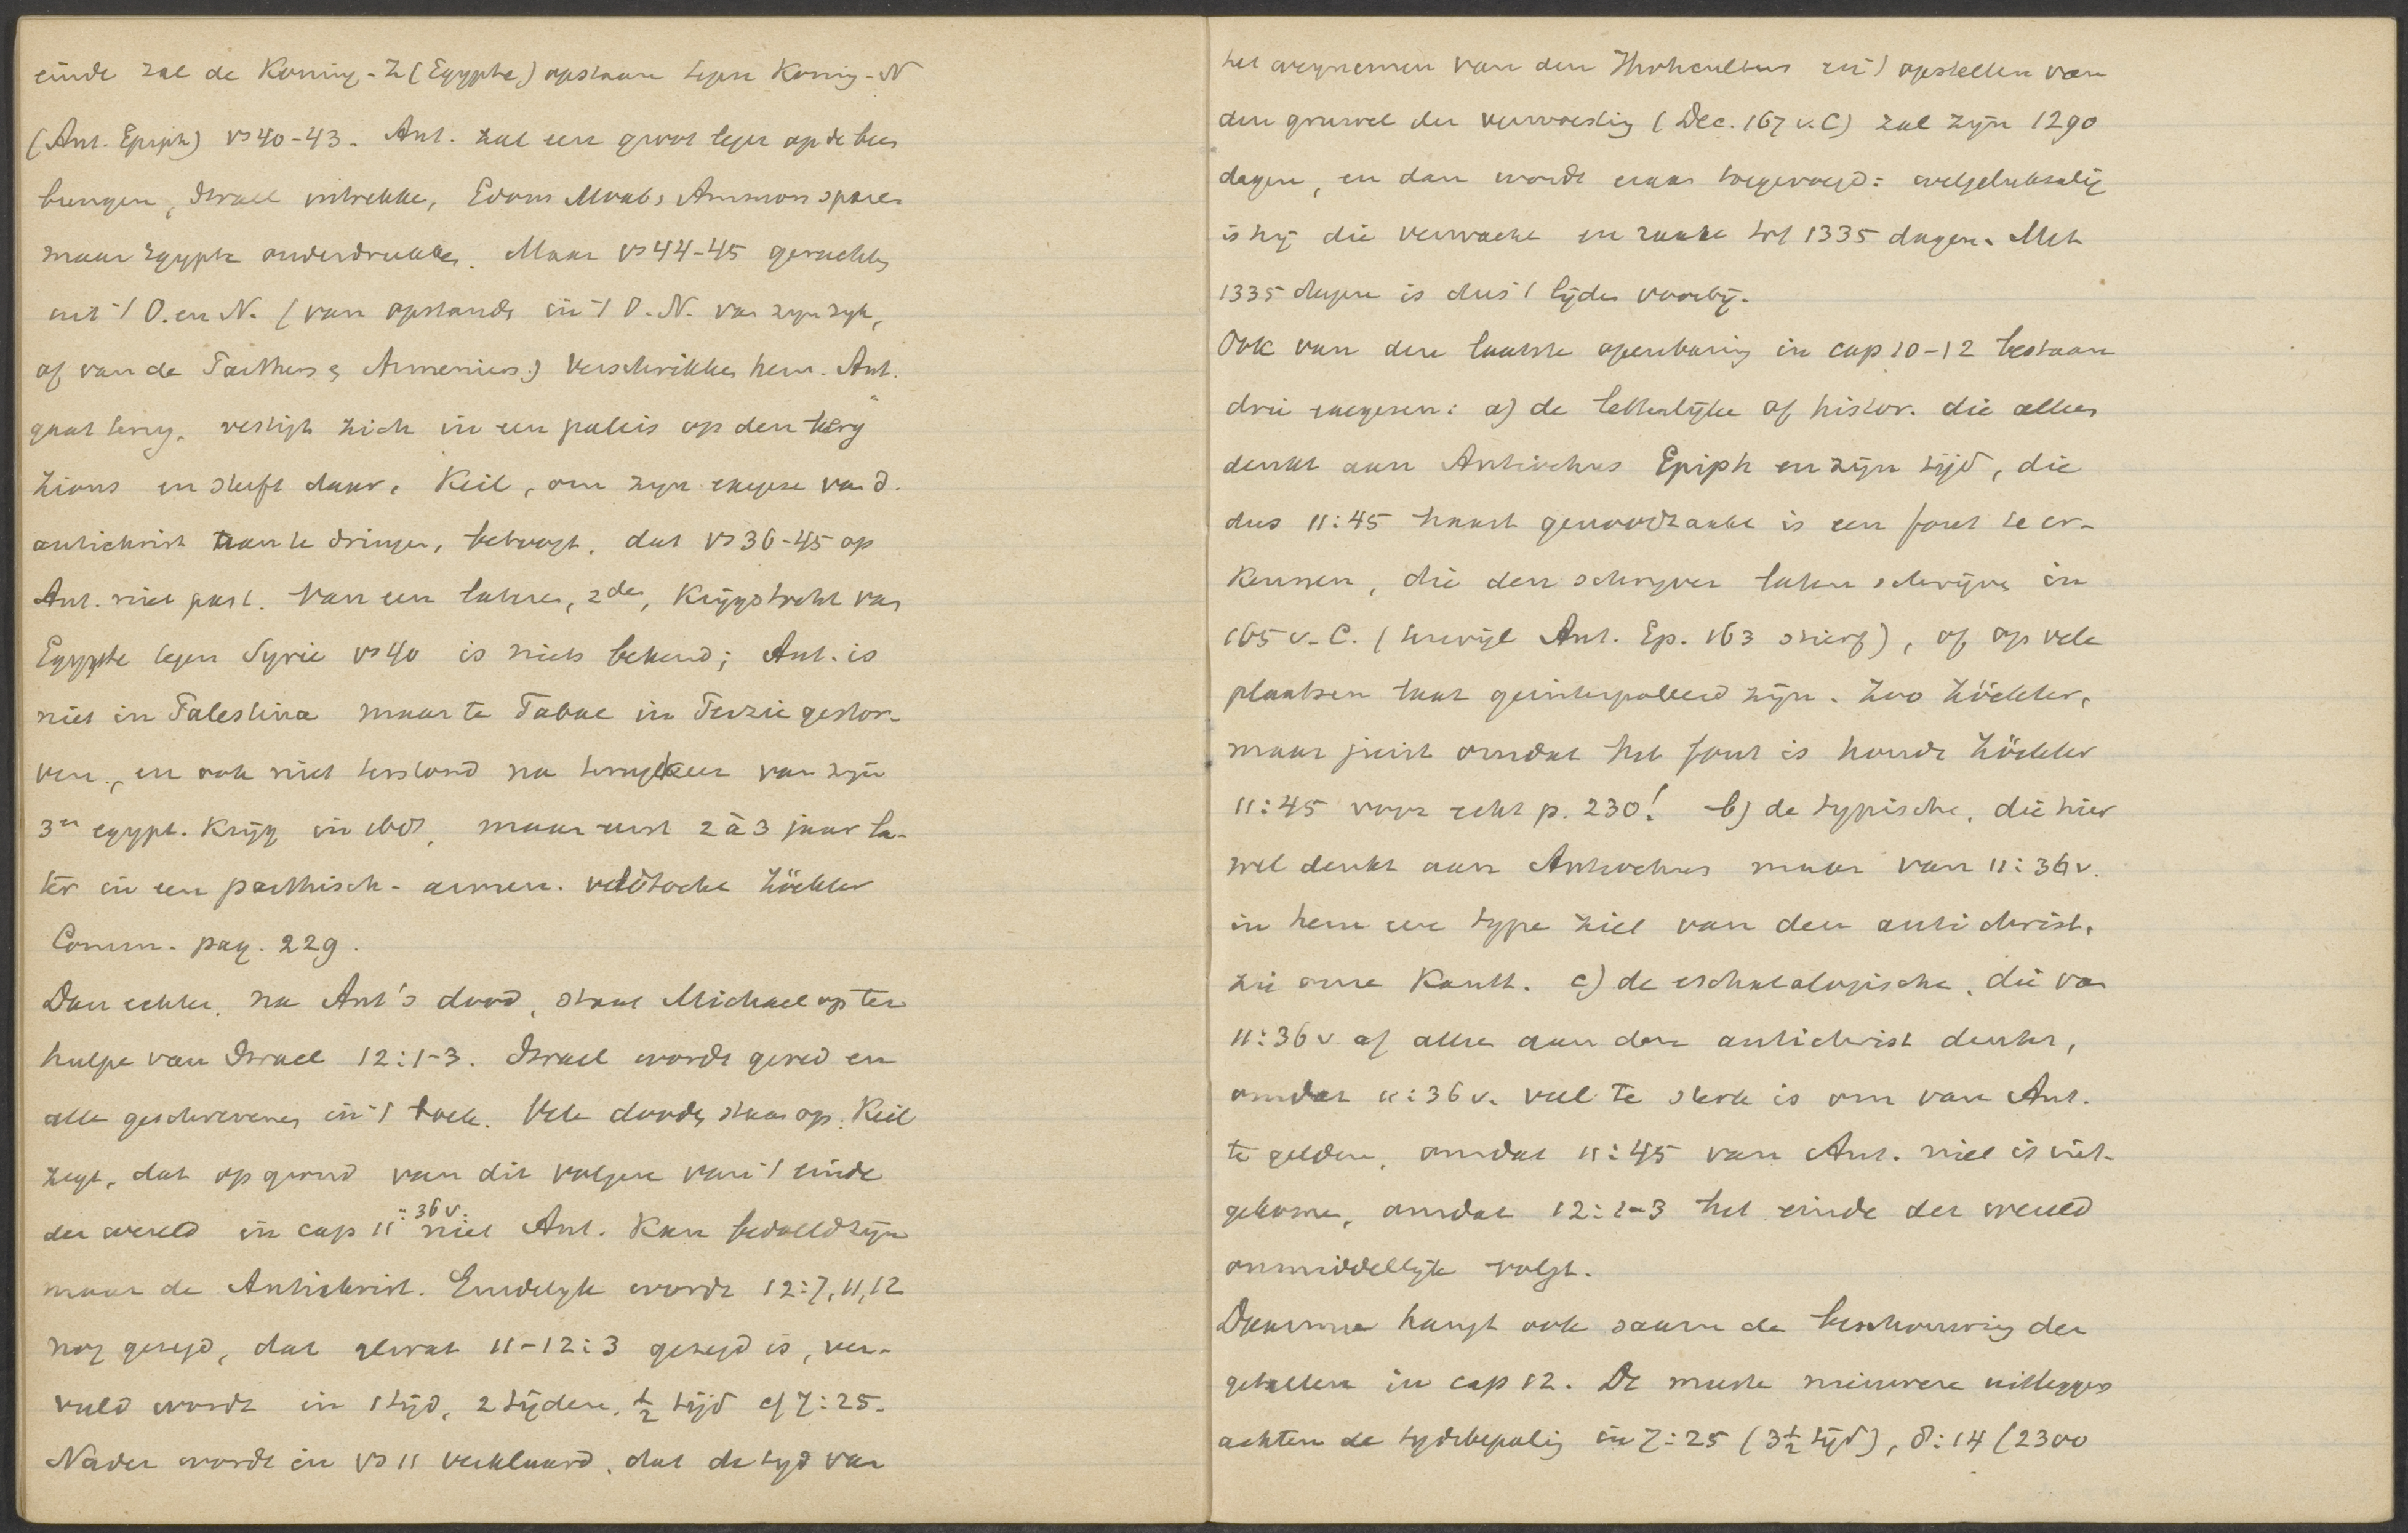 einde zal de Koning-Z (Egypte) opstaan tegen Koning-N
(Ant. Epiph) vs 40-43. Ant. zal een groot leger op de been
brengen, Israel intrekke, Edom Moab, Ammon sparen
maar Egypte onderdrukken. Maar vs 44-45 geruchten
uit 't O. en N. (van opstanden in 't O. N. van zijn rijk,
of van de Parthers & Armeniers) verschrikken hem. Ant.
gaat terug, vestigt zich in een paleis op den berg
Zions en sterft daar. Keil, om zijn exegese van d.
antichrist aan te dringen, betoogt, dat vs 36-45 op
Ant. niet past. Van een lateren, 2den, Krijgstocht van
Egypte tegen Syrie vs 40 is niets bekend; Ant. is
niet in Palestina maar te Tabae in Perzie gestor-
ven, en ook niet terstond na terugkeer van zijn
3en egypt. Krijg in 168, maar eerst 2 à 3 jaar la-
ter in een parthisch-armen. veldtocht Zöckler
Comm. pag. 229.
Dan echter, na Ant's dood, staat Michael op ter
hulpe van Israel 12:1-3. Israel wordt gered en
alle geschrevenen in 't boek. Vele dooden staan op. Keil
zegt, dat op grond van dit volgen van 't einde
der wereld in cap 11:36v. niet Ant. Kan bedoeld zijn
maar de Antichrist. Eindelijk wordt 12:7,11,12
nog gezegd, dat alwat 11-12:3 gezegd is, ver-
vuld wordt in 1 tijd, 2 tijden, ½ tijd cf 7:25.
Nader wordt in vs 11 verklaard, dat de tijd van
het wegnemen van den Jhvhcultus en 't opstellen van
den gruwel der verwoesting (Dec. 167 v.C) zal zijn 1290
dagen, en dan wordt eraan toegevoegd: welgelukzalig
is hij die verwacht en raakt tot 1335 dagen. Met
1335 dagen is dus 't lijden voorbij.
Ook van deze laatste openbaring in cap 10-12 bestaan
drie exegesen: a) de letterlijke of histor. die alleen
denkt aan Antiochus Epiph en zijn tijd, die
dus 11:45 haast genoodzaakt is een fout te er-
kennen, die den schrijver laten schrijven in
165 v.C. (terwijl Ant. Ep. 163 stierf), of op vele
plaatsen laat geinterpoleerd zijn. Zoo Zöckler,
maar juist omdat het fout is houdt Zöckler
11:45 voor echt p. 230! b) de typische, die hier
wel denkt aan Antiochus maar van 11:36v.
in hem een type ziet van den antichrist.
zie onze Kantt. c) de eschatologische, die van
11:36v af alleen aan den antichrist denkt,
omdat 11:36v. veel te sterk is om van Ant.
te gelden, omdat 11:45 van Ant. niet is uit-
gekomen, omdat 12:1-3 het einde der wereld
onmiddellijk volgt.
Daarmee hangt ook samen de beschouwing der
getallen in cap 12. De meeste nieuwere uitleggers
achten de tijdsbepaling in 7:25 (3½ tijd), 8:14 (2300